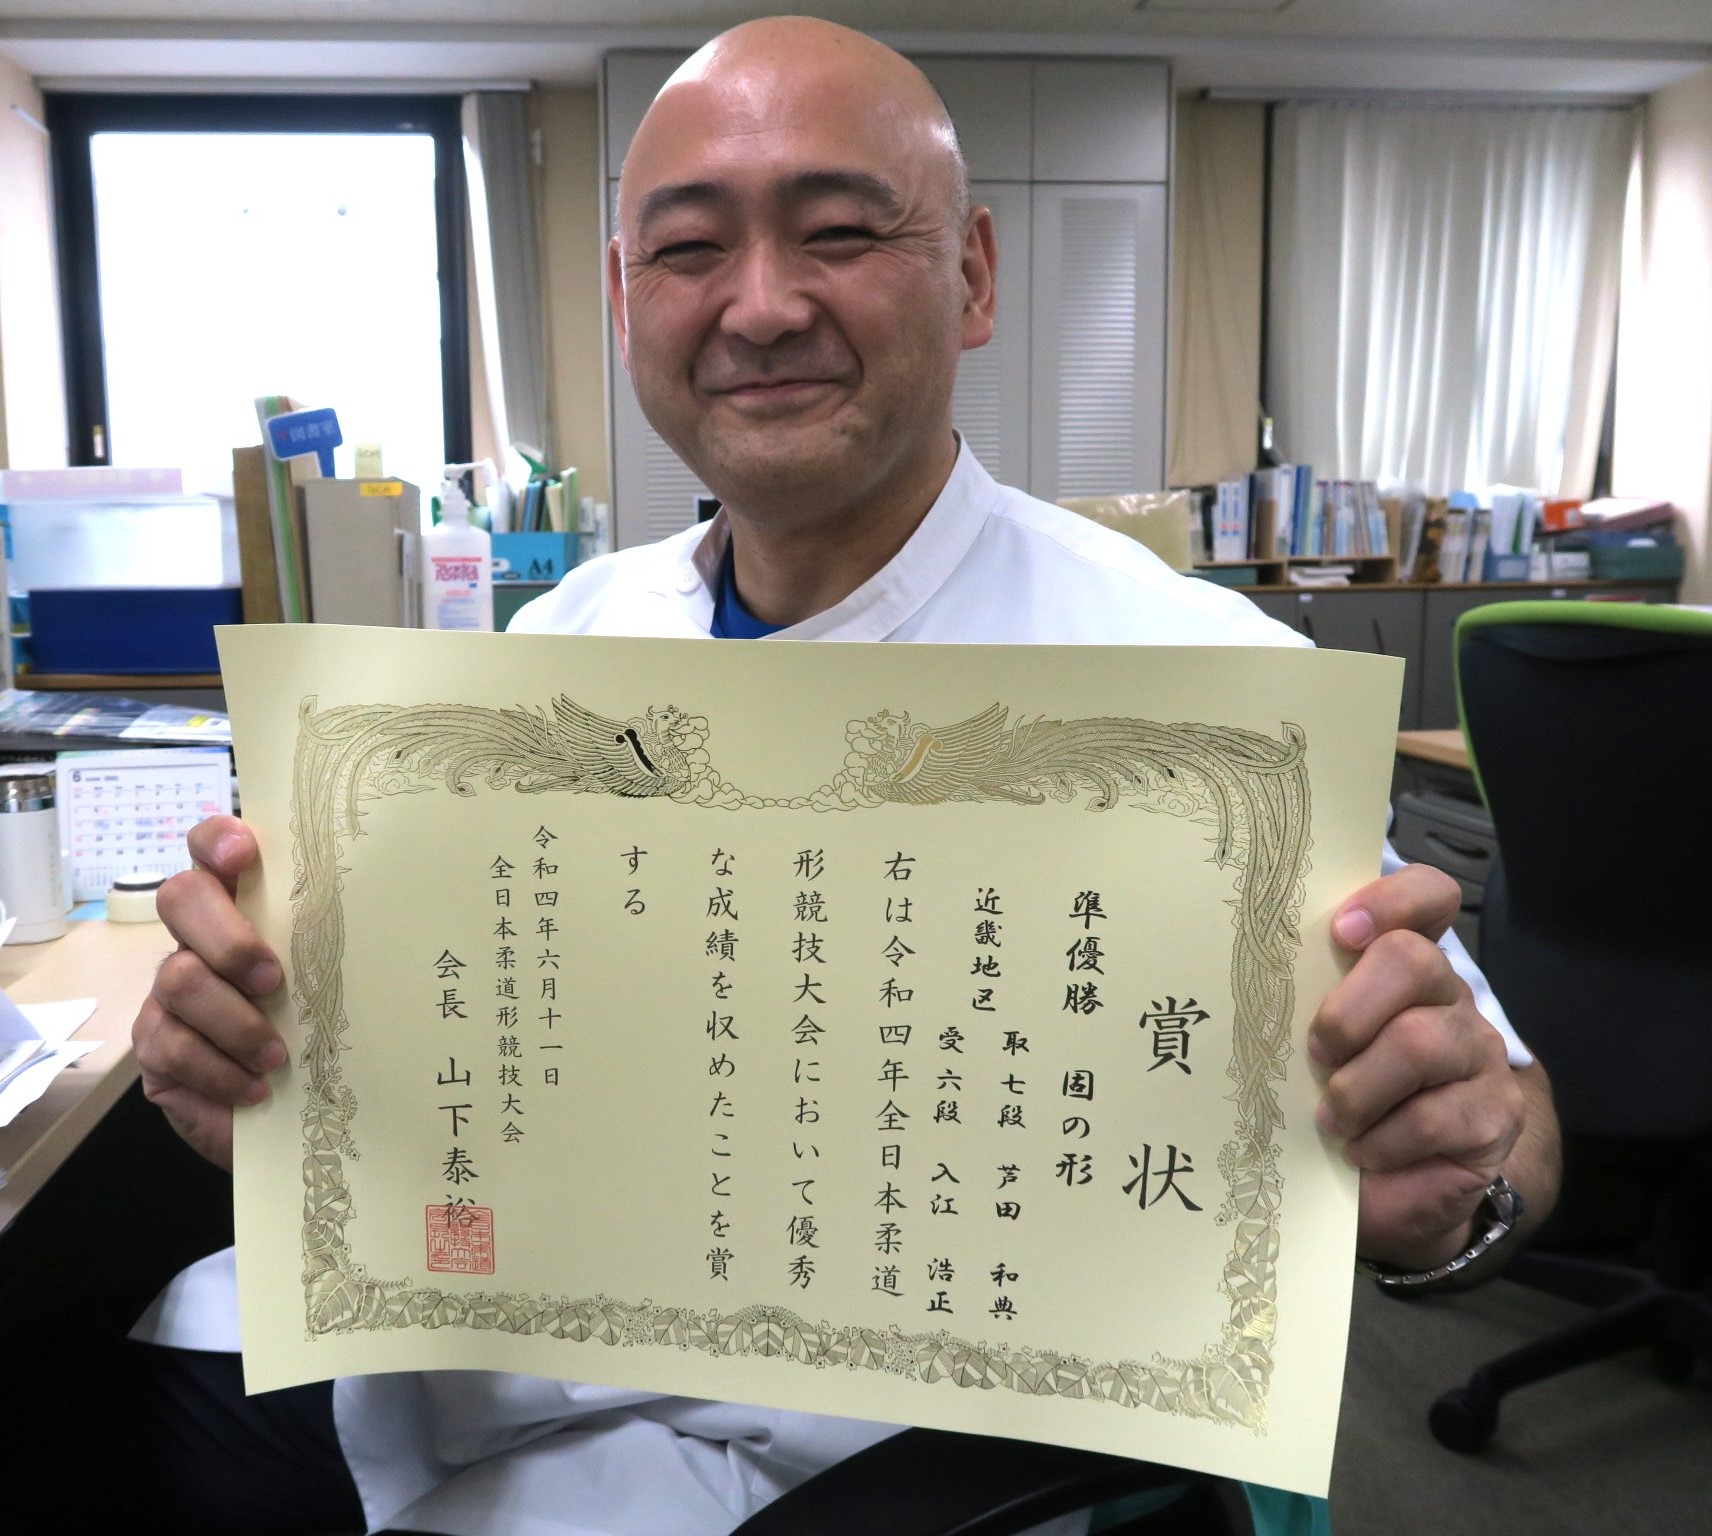 賞状
準優勝 固の形
近畿地区
取 七段 芦田 和典
受 六段 入江 浩正
右は令和四年全日本柔道
形競技大会において優秀
な成績を収めたことを賞
する
令和四年六月十一日
全日本柔道形競技大会
会長 山下泰裕
図書室
A4
6 June 2022